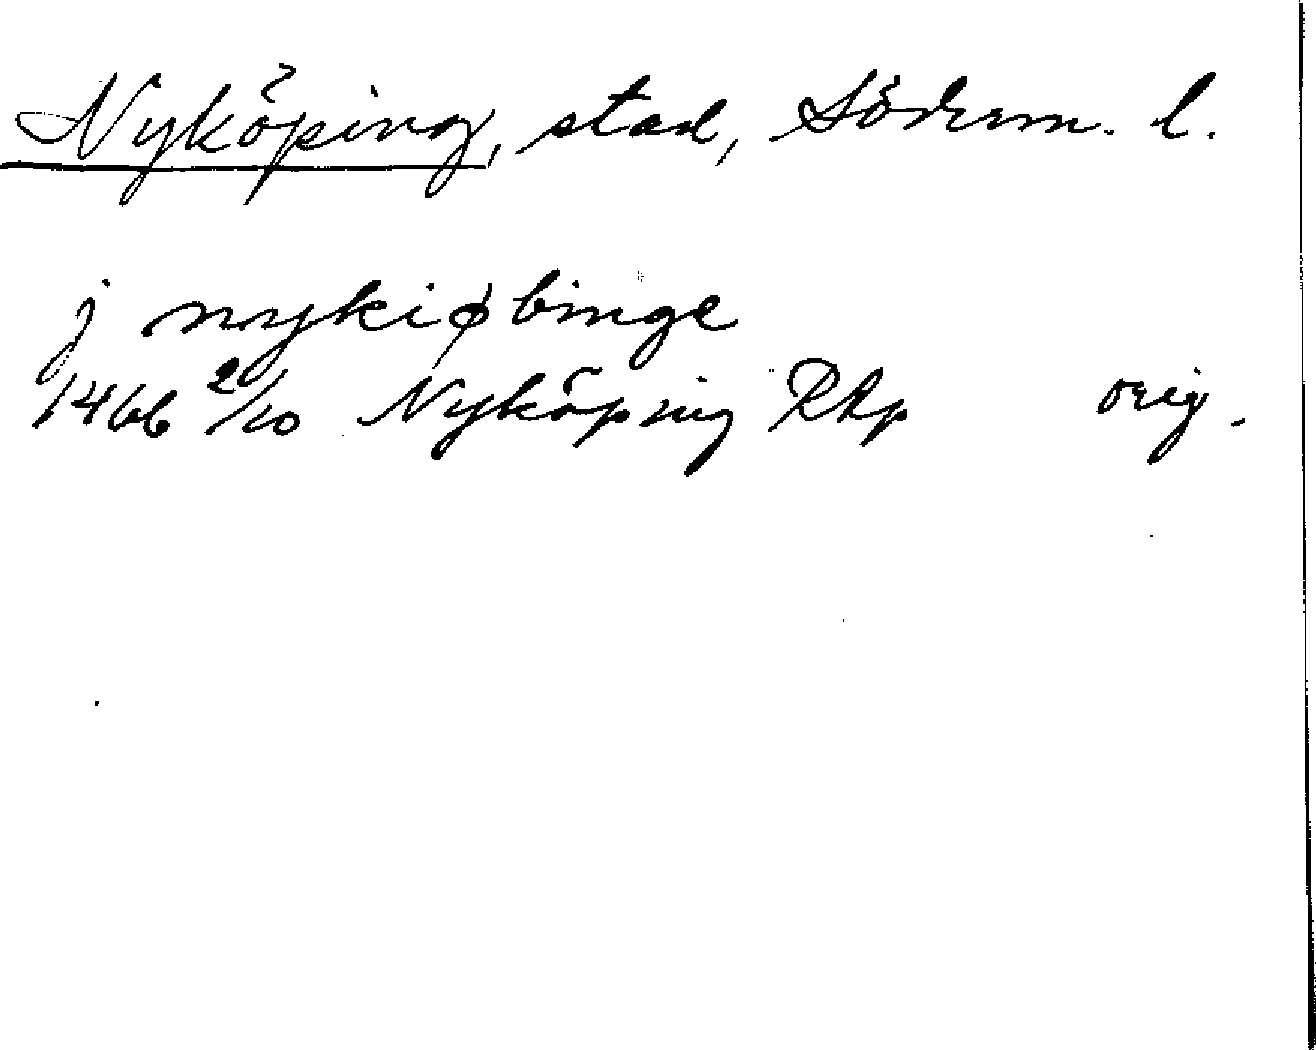 Nyköping, stad, Söderm. l.
j nykiøbinge
1466 2/10 Nyköping RAp orig.